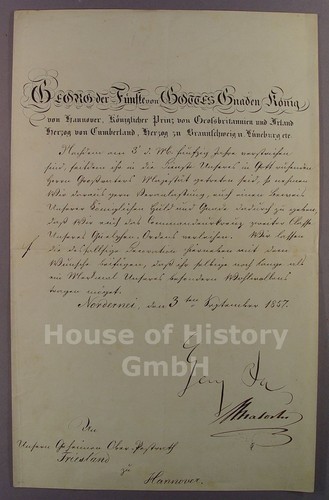 GEORG der Fünfte von GOTTES Gnaden König
von Hannover, Königlicher Prinz von Großbritannien und Irland
Herzog von Cumberland, Herzog zu Braunschweig u. Lüneburg etc.
Nachdem am 3 d. Mts fünfzig Jahre verstrichen
sind, seitdem ihr in die Unseres in Gott ruhenden
Herrn Großvaters Majestät getreten seid, so nehmen
Wir daraus gern Veranlassung, euch einen Beweis
Unserer Königlichen Huld und Gnade dadurch zu geben,
daß Wir euch das Commandeurkreuz zweiter Classe
Unseres Guelphen-Ordens verleihen. Wir lassen
die desfallsige Decoration hierneben mit dem
Wunsche beifügen, daß ihr selbige noch lange als
ein Merkmal Unseres besondern Wohlwollens
tragen möget.
Norderney, den 3ten September 1857.
House of History
GmbH
Georg Rex
An
Unsern Geheimen Ober-Postrath
Friesland
zu
Hannover.